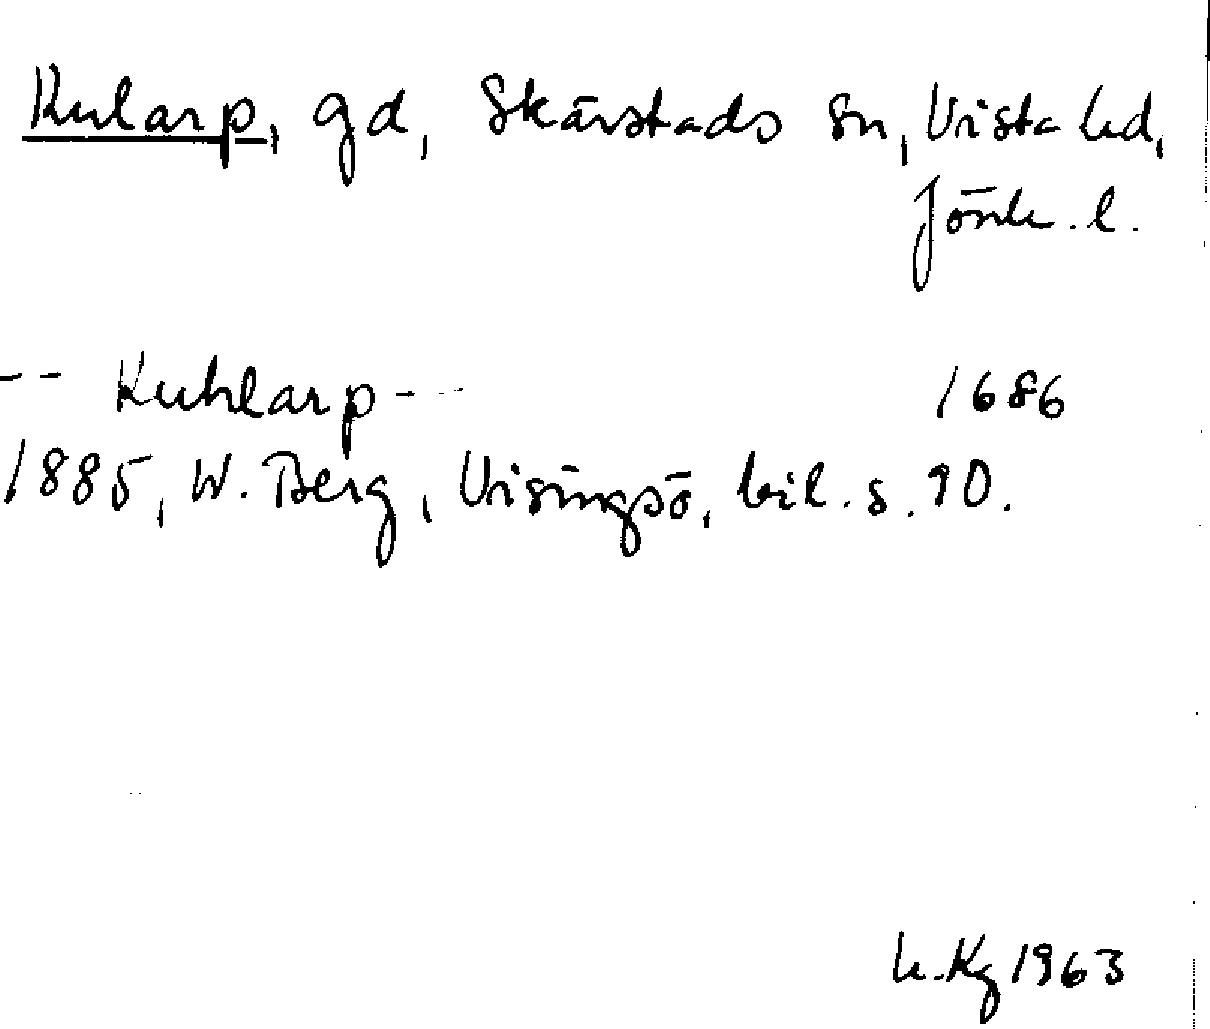 Kularp, gd, Skärstads sn, Vista hd,
Jönk. l.
-- Kuhlarp --- 1686
1885, W. Berg, Visingsö, bil. s. 90.
K.Kg 1963